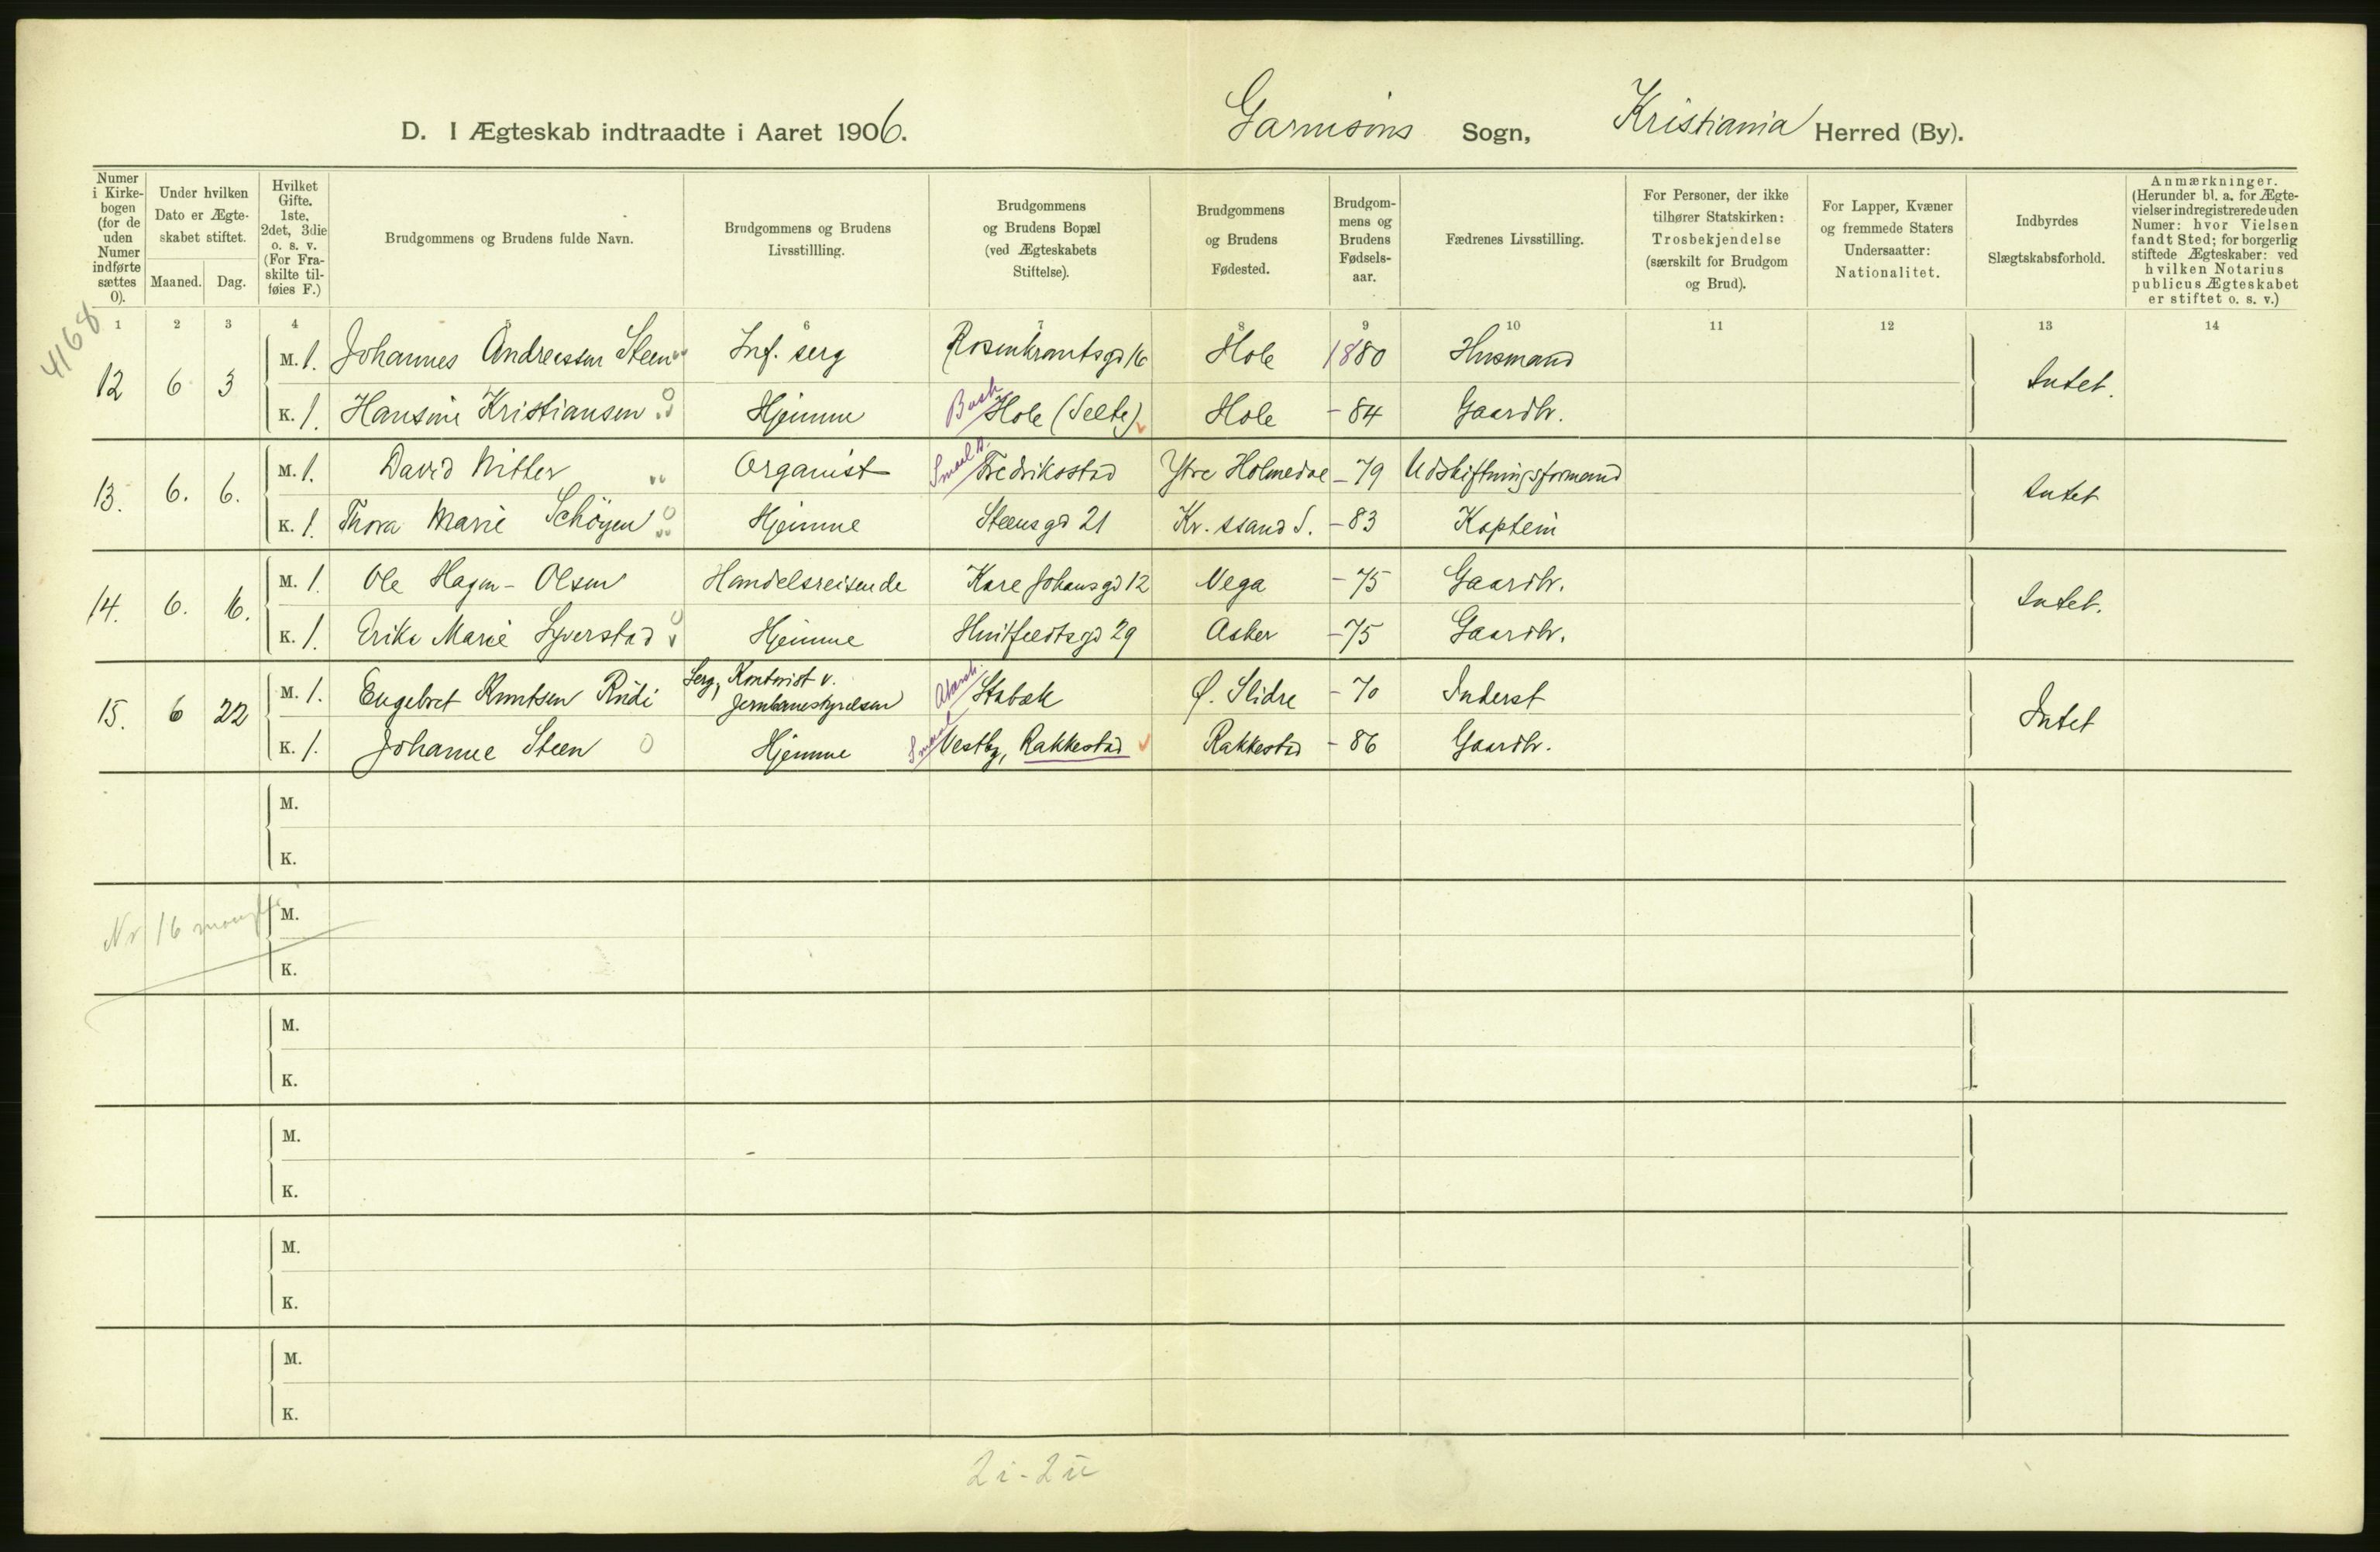 D. I Ægteskab indtraadte i Aaret 1906. Garnisons Sogn, Kristiania Herred (By).
Numer i Kirkebogen (for de uden Numer indførte sættes 0).
Under hvilken Dato er Ægteskabet stiftet.
Maaned. Dag.
Hvilket Gifte. 1ste, 2det, 3die o. s. v. (For Fraskilte tilføies F.)
Brudgommens og Brudens fulde Navn.
Brudgommens og Brudens Livsstillling.
Brudgommens og Brudens Bopæl (ved Ægteskabets Stiftelse).
Brudgommens og Brudens Fødested.
Brudgommens og Brudens Fødselsaar.
Fædrenes Livsstilling.
For Personer, der ikke tilhører Statskirken: Trosbekjendelse (særskilt for Brudgom og Brud).
For Lapper, Kvæner og fremmede Staters Undersaatter: Nationalitet.
Indbyrdes Slægtskabsforhold.
Anmærkninger. (Herunder bl. a. for Ægtevielser indregistrerede uden Numer: hvor Vielsen fandt Sted; for borgerlig stiftede Ægteskaber: ved hvilken Notarius publicus Ægteskabet er stiftet o. s. v.)
1 2 3 4 5 6 7 8 9 10 11 12 13 14
4168
12 6 3 M. 1. Johannes Andreessen Steen Inf. serg Rosenkrantsgd 16 Hole 1880 Husmand Intet.
K. 1. Hansine Kristiansen Hjemme Busk Hole (Selte) Hole - 84 Gaardbr.
13. 6. 6. M. 1. David Nitter Organist Smaal. Fredriksstad Ytre Holmedal - 79 Udskiftningsformand Intet
K. 1. Thora Marie Schöyen Hjemme Steensgd 21 Kr.ssand S. - 83 Kaptein
14. 6. 16. M. 1. Ole Hagen-Olsen Handelsreisende Karl Johansgd 12 Vega - 75 Gaardbr. Intet.
K. 1. Erika Marie Syverstad Hjemme Huitfeldtsgd 29 Asker - 75 Gaardbr.
15. 6 22 M. 1. Engebret Knutsen Rudi Serg, Kontorist v. Jernbanestyrelsen Akersh. Stabæk Ø. Slidre - 70 Inderst Intet
K. 1. Johanne Steen Hjemme Smaal Vestby, Rakkestad Rakkestad - 86 Gaardbr.
M.
K.
Nr 16 mangler
M.
K.
M.
K.
M.
K.
M.
K.
M.
K.